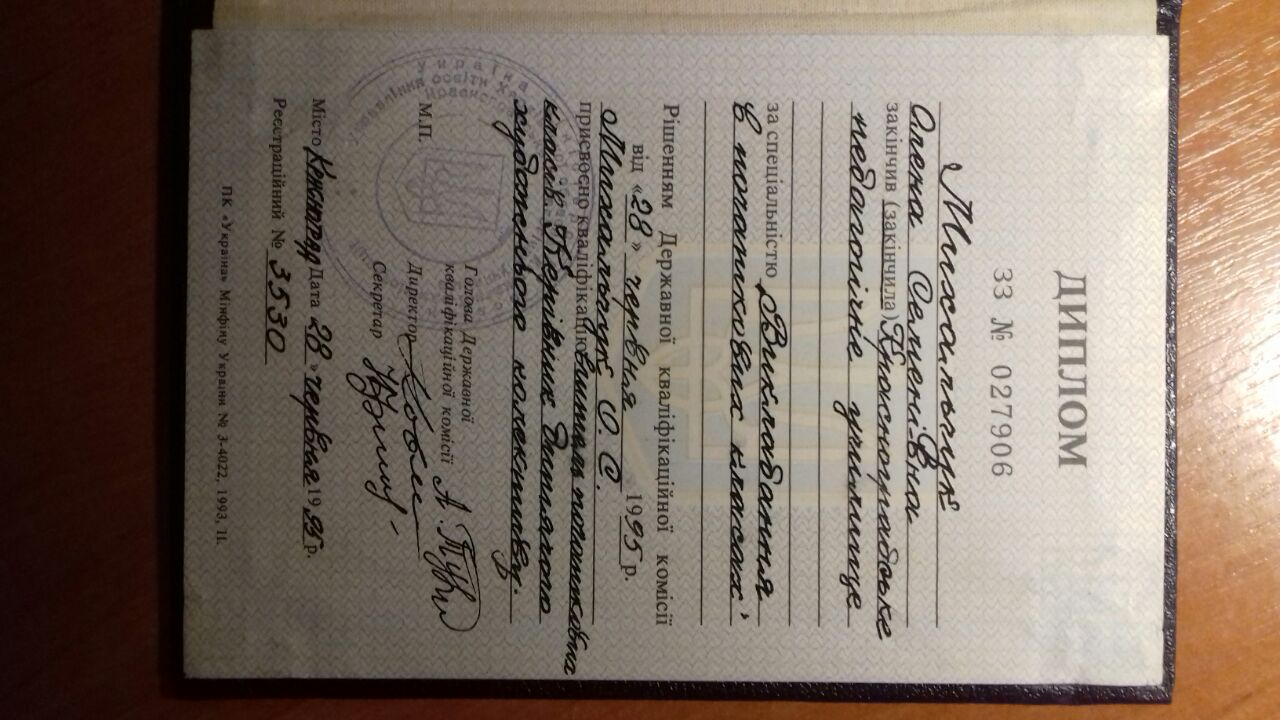 ДИПЛОМ
ЗЗ № 027906
Михальчук
Олена Семенівна
закінчив (закінчила) Красноградське
педагогічне училище
за спеціальністю „Викладання
в початкових класах"
Рішенням Державної кваліфікаційної комісії
від «28» червня 1995 р.
Михальчук О. С.
присвоєно кваліфікацію вчителя початкових
класів. Керівник дитячого
художнього колективу.
Голова Державної
кваліфікаційної комісії
М.П. Директор
Секретар
Місто Красноград Дата «28» червня 1995 р.
Реєстраційний № 3530
ПК «Україна» Мінфіну України № 3-4022, 1993, II.
Україна